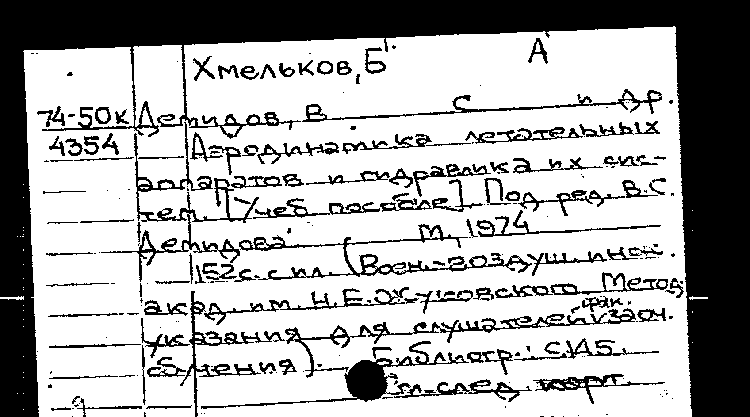 Хмельков, Б. А
74-50к Демидов, В С и др.
4354 Аэродинамика летательных
аппаратов и гидравлика их сис-
тем. [Учеб пособие]. Под ред. В.С.
Демидова. М., 1974
152с. с ил. (Воен.-воздуш. инж.
акад. им. Н.Е.Жуковского. Метод
фак.
указания для слушателей заоч.
обучения). Библиогр.: с.145.
см. след. карт.